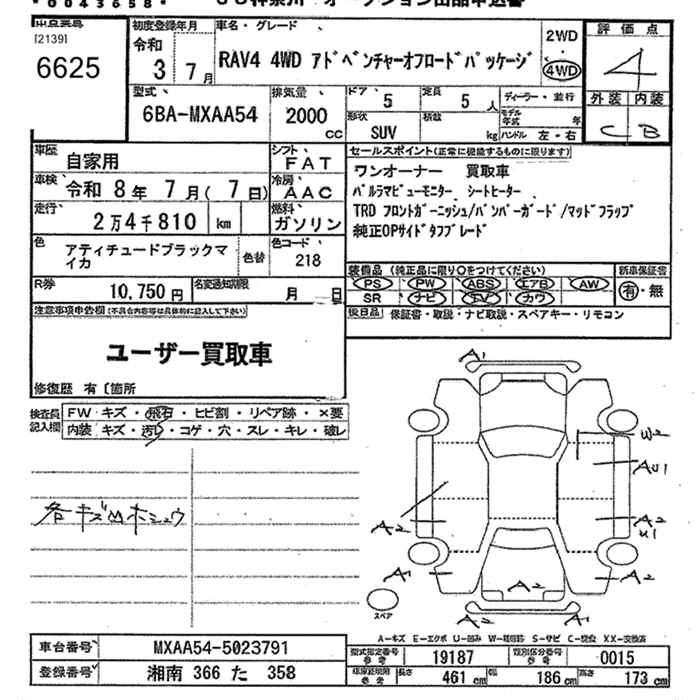 [2139]
6625
初度登録年月
令和
3 7月
車名・グレード
RAV4 4WD アドベンチャーオフロードパッケージ
2WD
・
4WD
評価点
4
外装 内装
C B
型式
6BA-MXAA54
排気量
2000
cc
ドア
5
定員
5人
形状
SUV
積載
kg
ディーラー・並行
モデル年式 年
ハンドル 左・右
車歴
自家用
シフト
FAT
車検
令和 8年 7月( 7日)
冷房
AAC
走行
2万4千810 km
燃料
ガソリン
色
アティチュードブラックマイカ
色替
色コード
218
R券
10,750円
名変通知期限
月 日
セールスポイント(正常に機能するものに限ります)
ワンオーナー 買取車
パノラマビューモニター シートヒーター
TRD フロントガーニッシュ/バンパーガード/マッドフラップ
純正OPサイドタフブレード
装備品 (純正品に限り○をつけてください)
PS PW ABS エアB AW
SR ナビ TV カワ
新車保証書
有・無
後日品 保証書・取説・ナビ取説・スペアキー・リモコン
注意事項申告欄(不具合内容等は具体的に記入して下さい)
ユーザー買取車
修復歴 有〔箇所
検査員記入欄
FW キズ・飛石・ヒビ割・リペア跡・×要
内装 キズ・汚れ・コゲ・穴・スレ・キレ・破レ
各キズ凹ホシュウ
A1
W2
AU1
A2
A2
U1
A1
A2
A2
A1
スペア
A-キズ E-エクボ U-凹み W-補修跡 S-サビ C-腐食 XX-交換済
車台番号
MXAA54-5023791
登録番号
湘南 366 た 358
型式指定番号
参考
19187
類別区分番号
参考
0015
車庫証明用
参考
長さ
461 cm
幅
186 cm
高さ
173 cm